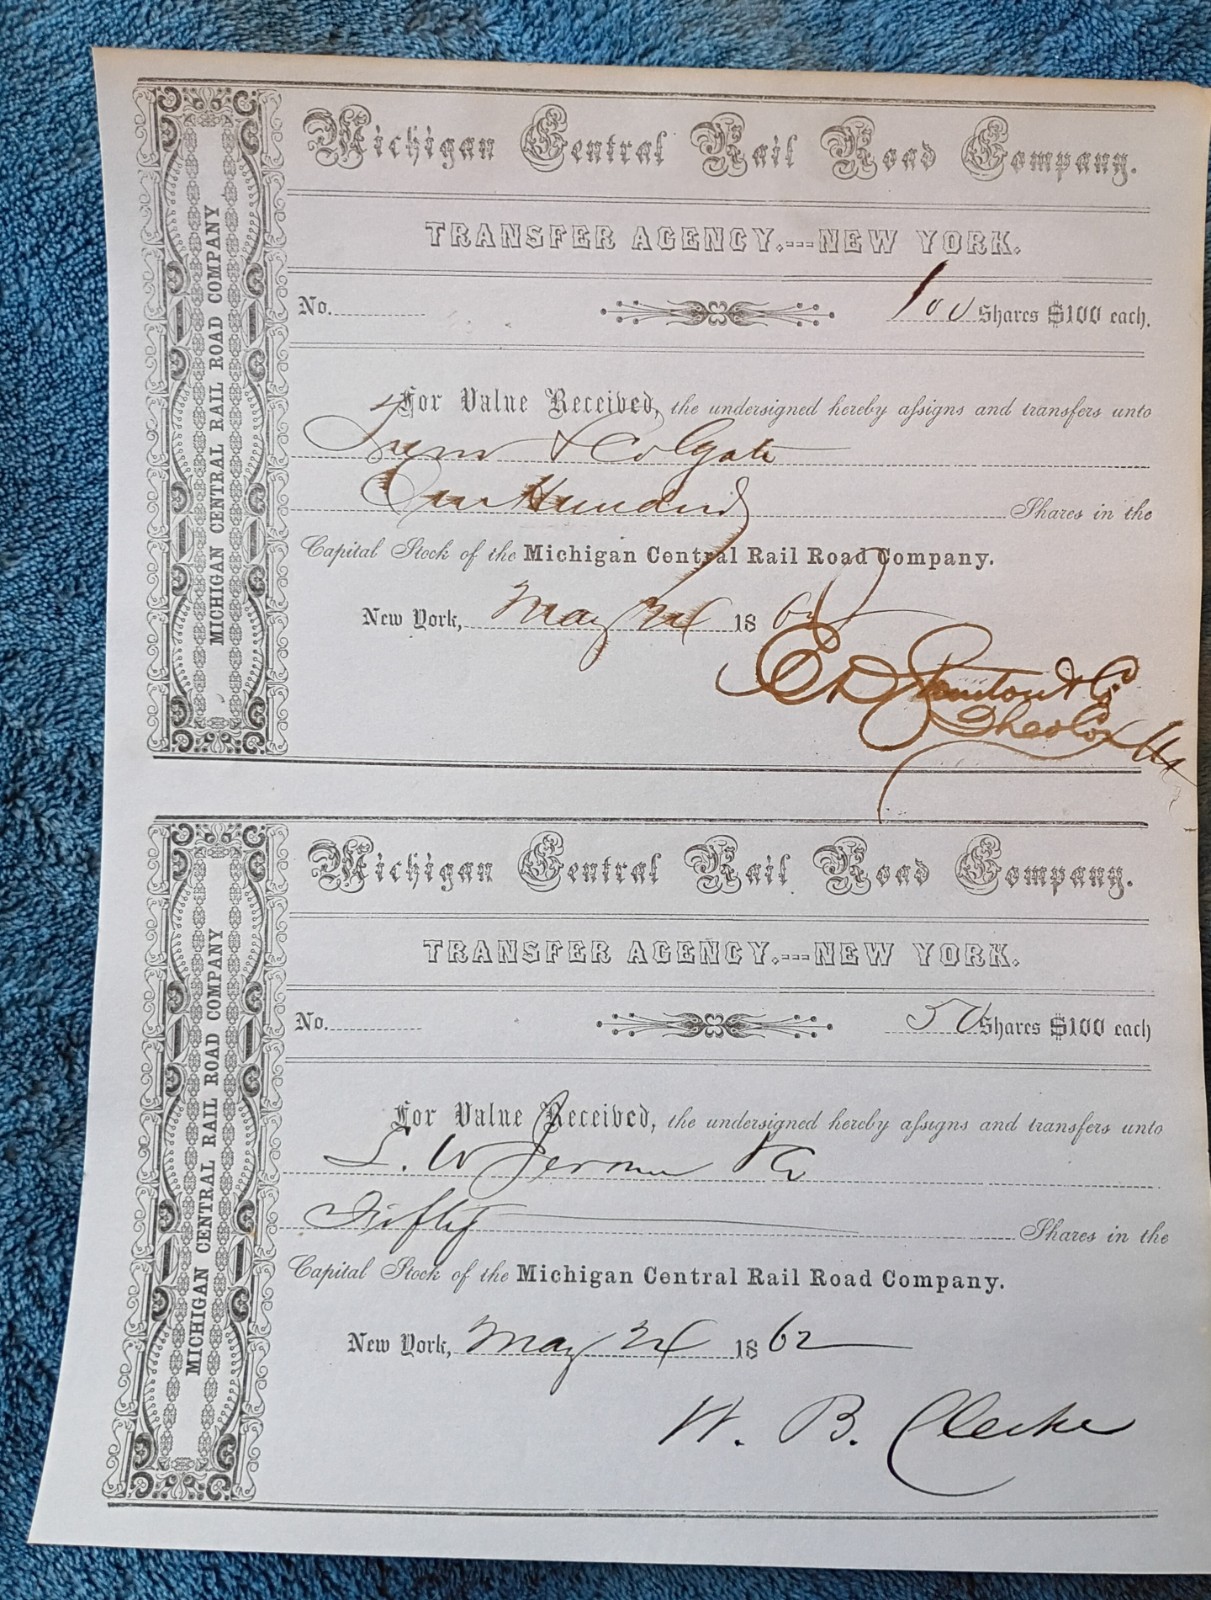 Michigan Central Rail Road Company.
TRANSFER AGENCY.---NEW YORK.
No. 100 Shares $100 each.
For Value Received, the undersigned hereby assigns and transfers unto
& Colgate
One Hundred Shares in the
Capital Stock of the Michigan Central Rail Road Company.
New York, May 24 1862
E D & Co
MICHIGAN CENTRAL RAIL ROAD COMPANY
Michigan Central Rail Road Company.
TRANSFER AGENCY.---NEW YORK.
No. 50 Shares $100 each
For Value Received, the undersigned hereby assigns and transfers unto
W Jerome & Co
Fifty Shares in the
Capital Stock of the Michigan Central Rail Road Company.
New York, May 24 1862
W. B. Clerke
MICHIGAN CENTRAL RAIL ROAD COMPANY